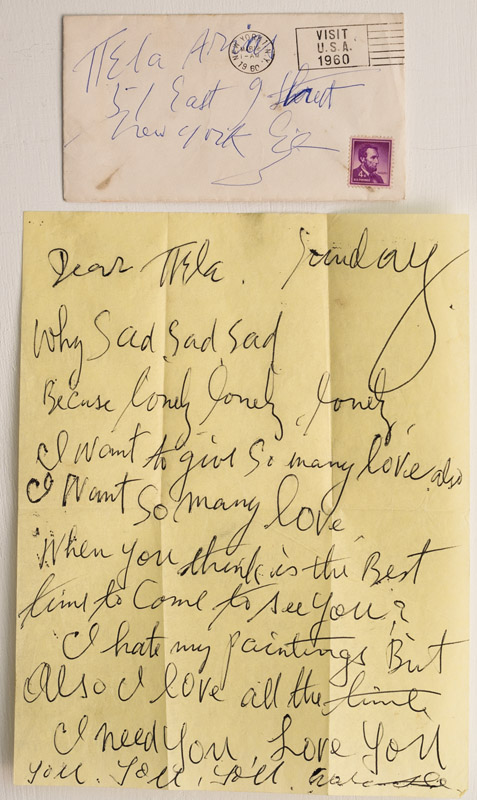 NEW YORK, N.Y.
1960
VISIT
U.S.A.
1960
TTEla
51 East 9 Street
New York
4¢
Dear TTEla. Sunday
Why Sad, Sad, Sad
Becuse lonely lonely, lonely,
I Want to give So many love also
I Want So many love
When you think is the Best
time to Come to see You?
I hate my paintings But
Also I love all the time
I need You, Love You
You. You, You.